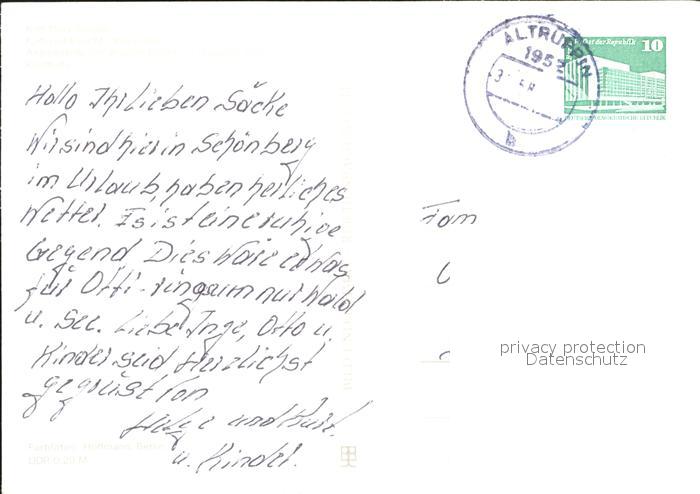 Hallo Ihr Lieben Säcke
Wir sind hier in Schönberg
im Urlaub, haben herrliches
Wetter. Es ist eine ruhige
Gegend Dies wäre etwas
für Otti - ringsum nur Wald
u. See. Liebe Inge, Otto u.
Kinder seid Herzlichst
gegrüst von
und Kurt.
u. Kinder.
Farbfoto: Hoffmann, Berlin
DDR 0,20 M
ALTRUPPIN
1953
b
der Republik 10
DEUTSCHE DEMOKRATISCHE REPUBLIK
Fam
privacy protection
Datenschutz